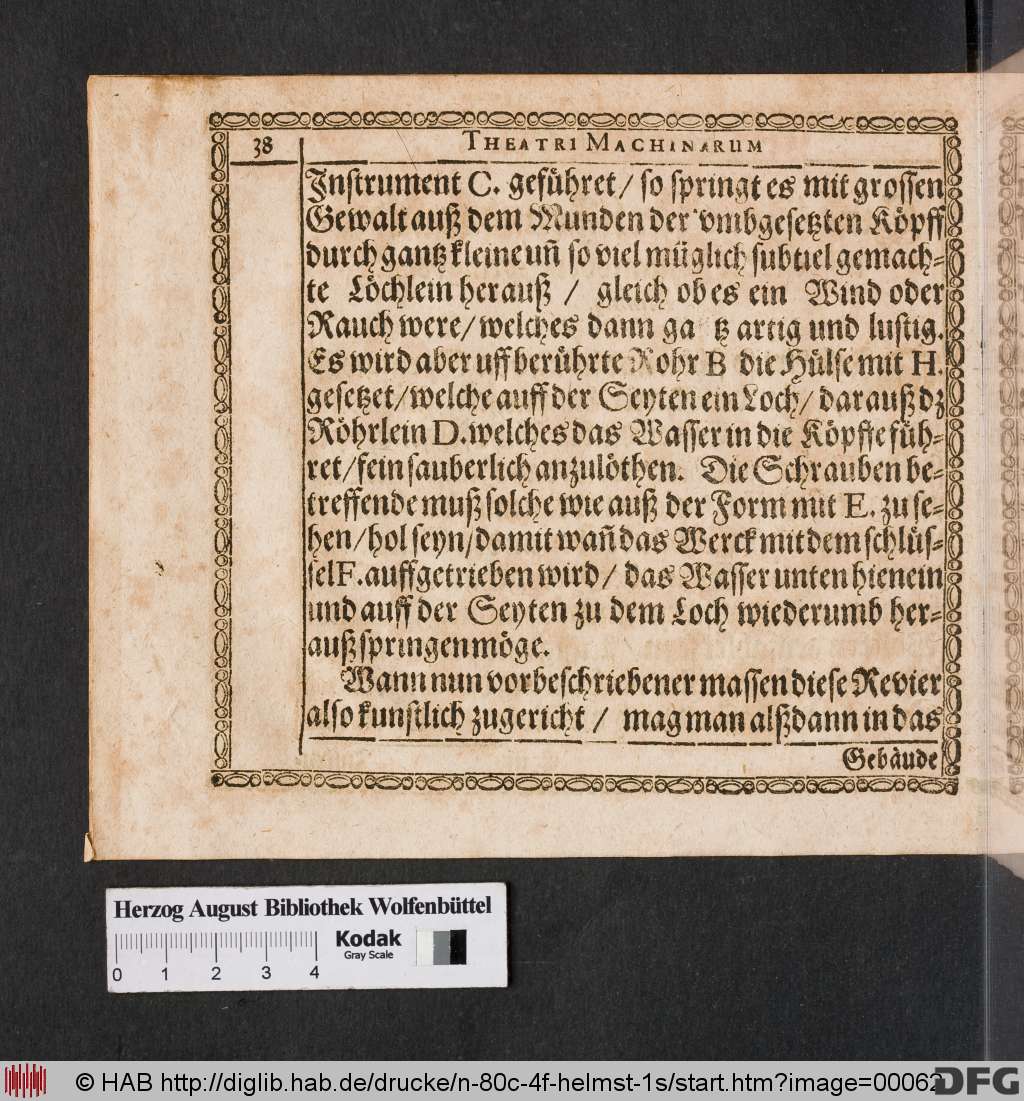 38
THEATRI MACHINARUM
Instrument C. geführet / so springt es mit grossen
Gewalt auß dem Munden der vmbgesetzten Köpff
durch gantz kleine uñ so viel müglich subtiel gemach=
te Löchlein herauß / gleich ob es ein Wind oder
Rauch were / welches dann ga tz artig und lustig.
Es wird aber uff berührte Rohr B die Hülse mit H.
gesetzet / welche auff der Seyten ein Loch / darauß dz
Röhrlein D. welches das Wasser in die Köpffe füh=
ret / fein sauberlich anzulöthen. Die Schrauben be=
treffende muß solche wie auß der Form mit E. zu se=
hen / hol seyn / damit wañ das Werck mit dem schlüs=
sel F. auffgetrieben wird / das Wasser unten hienein
und auff der Seyten zu dem Loch wiederumb her=
auß springen möge.
Wann nun vorbeschriebener massen diese Revier
also kunstlich zugericht / mag man alßdann in das
Gebäude
Herzog August Bibliothek Wolfenbüttel
Kodak
Gray Scale
0 1 2 3 4
© HAB http://diglib.hab.de/drucke/n-80c-4f-helmst-1s/start.htm?image=00062
DFG